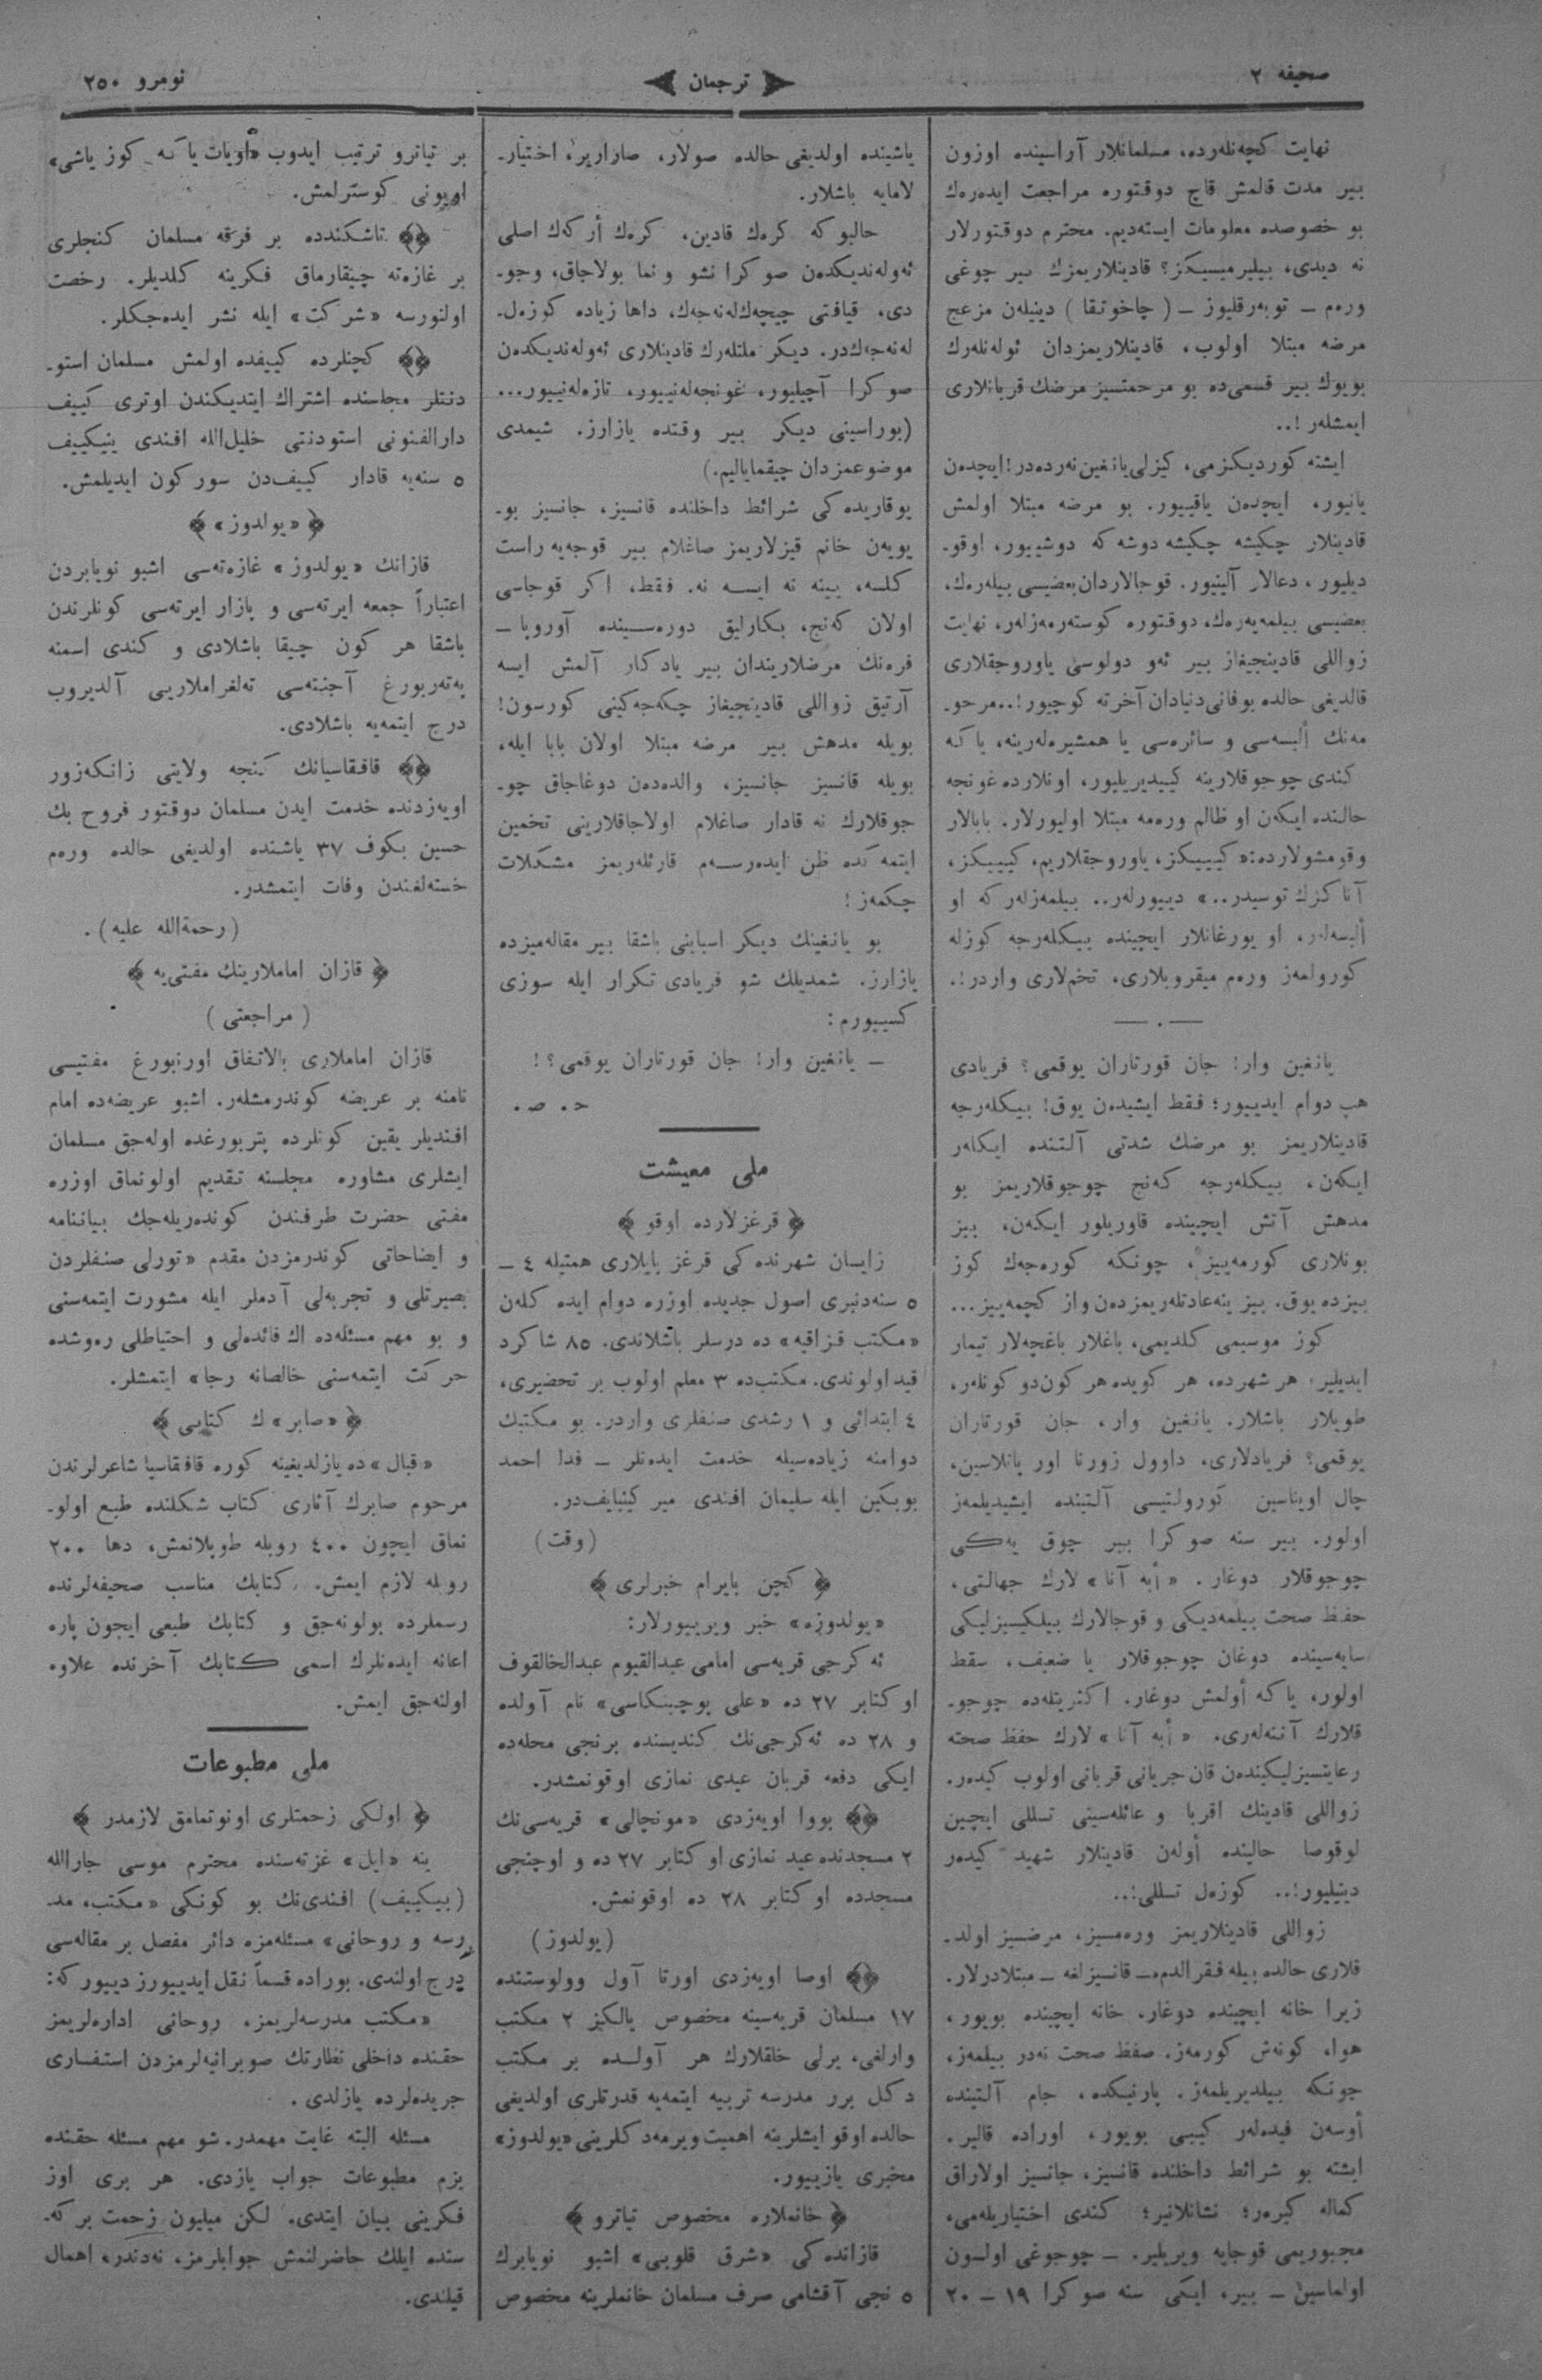 صحیفه ٢
ترجمان
نومرو ٢٥٠
نهایت كچه‌نله‌رده، مسلمانلار آراسینده اوزون
بیر مدت قالمش قاچ دوقتوره مراجعت ایده‌رەك
بو خصوصده معلومات ایسته‌دیم. محترم دوقتورلار
نه دیدی، بیلیرمیسیكز؟ قادینلاریمزك بیر چوغی
ورەم ــ توبەرقلیوز ــ ( چاخوتقا ) دینیلەن مزعج
مرضه مبتلا اولوب، قادینلاریمزدان ئولەنلەرك
بویوك بیر قسمی‌ده بو مرحمتسیز مرضك قربانلاری
ایمشلەر!..
ایشته كوردیكزمی، كیزلی یانغین نەرده‌در! ایچدەن
یانیور، ایچدەن یاقییور. بو مرضه مبتلا اولمش
قادینلار چكیشه چكیشه دوشه كه دوشییور، اوقو-
دیلیور، دعالار آلینیور. قوجالاردان بعضیسی بیلەرەك،
بعضیسی بیلمەیەرەك، دوقتوره كوستەرمەزلەر، نهایت
زواللی قادینجیغاز بیر ئەو دولوسی یاوروجقلاری
قالدیغی حالده بوفانی دنیادان آخرته كوچیور!.. مرحو-
مه‌نك ألبسه‌سی و سائره‌سی یا همشیره‌لەرینه، یا كه
كندی چوجوقلارینه كییدیریلیور، اونلارده غونجه
حالنده ایكەن او ظالم ورەمه مبتلا اولیورلار. بابالار
وقومشولارده: «كییییكز، یاوروجقلاریم، كییییكز،
آنا كزك توسیدر..» دییورلەر.. بیلمەزلەر كه او
ألبسەلەر، او یورغانلار ایچینده بیكلەرجه كوزله
كورولمەز ورەم میقروبلاری، تخم‌لاری واردر!.
ـــ . ـــ
یانغین وار! جان قورتاران یوقمی؟ فریادی
هپ دوام ایدییور؛ فقط ایشیدەن یوق! بیكلەرجه
قادینلاریمز بو مرضك شدتی آلتنده ایكلەر
ایكەن، بیكلەرجه كەنج چوجوقلاریمز بو
مدهش آتش ایچینده قاوریلور ایكەن، بیز
بونلاری كورمەییز، چونكه كورەجەك كوز
بیزده یوق. بیز ینه عادتلەریمزدەن واز كچمەییز...
كوز موسیمی كلدیمی، باغلار باغچەلار تیمار
ایدیلیر، هر شهرده، هر كویده هر كون دو كونلەر،
طویلار باشلار. یانغین وار، جان قورتاران
یوقمی؟ فریادلاری، داوول زورنا اور یانلاسین،
چال اویناسین كورولتیسی آلتینده ایشیدیلمەز
اولور. بیر سنه صوكرا بیر چوق یەكی
چوجوقلار دوغار. «أبه آنا» لارك جهالتی،
حفظ صحت بیلمەدیكی و قوجالارك بیلكیسیزلیكی
سایه‌سینده دوغان چوجوقلار یا ضعیف، سقط
اولور، یا كه أولمش دوغار. اكثریتله‌ده چوجو-
قلارك آننەلەری. «أبه آنا» لارك حفظ صحته
رعایتسیزلیكیندەن قان جریانی قربانی اولوب كیدەر.
زواللی قادینك اقربا و عائله‌سینی تسللی ایچین
لوقوصا حالینده أولەن قادینلار شهید كیدەر
دینیلیور!.. كوزەل تسللی!..
زواللی قادینلاریمز ورەمسیز، مرضسیز اولد-
قلاری حالده بیله فقرالدمه ــ قانسیزلغه ــ مبتلادرلار.
زیرا خانه ایچینده دوغار. خانه ایچینده بویور،
هوا، كونەش كورمەز. صفظ صحت نەدر بیلمەز،
چونكه بیلدیریلمەز. پارنیكده، جام آلتینده
أوسەن فیدەلەر كیبی بویور، اوراده قالیر.
ایشته بو شرائط داخلنده قانسیز، جانسیز اولاراق
كماله كیرەر؛ نشانلانیر؛ كندی اختیاریله‌می،
مجبوریمی قوجایه ویریلیر. ــ چوجوغی اولسون
اولماسین ــ بیر، ایكی سنه صوكرا ١٩ ــ ٢٠
یاشینده اولدیغی حالده صولار، صارارير، اختیار-
لامایه باشلار.
حالبوكه كرەك قادین، كرەك أركەك اصلی
ئەولەندیكدەن صوكرا نشو و نما بولاجاق، وجو-
دی، قیافتی چیچەكلەنەجەك، داها زیاده كوزەل-
لەنەجەكدر. دیكر ملتلەرك قادینلاری ئەولەندیكدەن
صوكرا آچیلیور، غونجەلەنییور، تازەلەنییور...
(بوراسینی دیكر بیر وقتده یازارز. شیمدی
موضوعمزدان چیقمایالیم.)
یوقاریده كی شرائط داخلنده قانسیز، جانسیز بو-
یویەن خانم قیزلاریمز صاغلام بیر قوجه‌یه راست
كلسه، بینه نه ایسه نه. فقط، اكر قوجاسی
اولان كەنج، بكارلیق دوره‌سینده آوروپا ــ
فرەنك مرضلاریندان بیر یادكار آلمش ایسه
آرتیق زواللی قادینجیغاز چكەجەكینی كورسون!
بویله مدهش بیر مرضه مبتلا اولان بابا ایله،
بویله قانسیز جانسیز، والدەدەن دوغاجاق چو-
جوقلارك نه قادار صاغلام اولاجاقلارینی تخمین
ایتمەكده ظن ایدەرسەم قارئلەریمز مشكلات
چكمەز!
بو یانغینك دیكر اسبابنی باشقا بیر مقاله‌میزده
یازارز. شمدیلك شو فریادی تكرار ایله سوزی
كسییورم:
ــ یانغین وار! جان قورتاران یوقمی؟!
ح. ص.
ملی معیشت
﴿ قرغزلارده اوقو ﴾
زایسان شهرنده كی قرغز بایلاری همتیله ٤ ــ
٥ سنەدنبری اصول جدیده اوزره دوام ایده كلەن
«مكتب قزاقیه» ده درسلر باشلاندی. ٨٥ شاكرد
قید اولوندی. مكتب‌ده ٣ معلم اولوب بر تحضیری،
٤ ابتدائی و ١ رشدی صنفلری واردر. بو مكتبك
دوامنه زیاده‌سیله خدمت ایدەنلر ــ فدا احمد
بوبكین ایله سلیمان افندی میر كینبایف‌در.
(وقت)
﴿ كچن بایرام خبرلری ﴾
«یولدوزه» خبر ویرییورلار:
ئه كرجی قریه‌سی امامی عبدالقیوم عبدالخالقوف
اوكتابر ٢٧ ده «علی بوچینكاسی» نام آولده
و ٢٨ ده ئه‌كرجی‌نك كندیسنده برنجی محله‌ده
ایكی دفعه قربان عیدی نمازی اوقونمشدر.
﴿﴾ بووا اویەزدی «مونچالی» قریه‌سی‌نك
٢ مسجدنده عید نمازی اوكتابر ٢٧ ده و اوچنجی
مسجدده اوكتابر ٢٨ ده اوقونمش.
(یولدوز)
﴿﴾ اوصا اویەزدی اورتا آول وولوستنده
١٧ مسلمان قریه‌سینه مخصوص یالكز ٢ مكتب
وارلغی، یرلی خلقلارك هر آولده بر مكتب
دكل برر مدرسه تربیه ایتمه‌یه قدرتلری اولدیغی
حالده اوقو ایشلرینه اهمیت ویرمەدكلرینی «یولدوز»
مخبری یازییور.
﴿ خانملاره مخصوص تیاترو ﴾
قازانده كی «شرق قلوبی» اشبو نویابرك
٥ نجی آقشامی صرف مسلمان خانملرینه مخصوص
بر تیاترو ترتیب ایدوب «اویات یا كه كوز یاشی»
اویونی كوسترلمش.
﴿﴾ تاشكندده بر فرقه مسلمان كنجلری
بر غازەته چیقارماق فكرینه كلدیلر. رخصت
اولنورسه «شركت» ایله نشر ایدەجكلر.
﴿﴾ كچنلرده كییفده اولمش مسلمان استو-
دنتلر مجلسنده اشتراك ایتدیكندن اوتری كییف
دارالفنونی استودنتی خلیل‌الله افندی ینیكییف
٥ سنه‌یه قادار كییف‌دن سوركون ایدیلمش.
﴿ «یولدوز» ﴾
قازانك «یولدوز» غازەتەسی اشبو نویابردن
اعتباراً جمعه ایرتەسی و یازار ایرتەسی كونلرندن
باشقا هر كون چیقا باشلادی و كندی اسمنه
پەتەربورغ آجنتەسی تەلغراملاریی آلدیروب
درج ایتمەیه باشلادی.
﴿﴾ قافقاسیانك كنجه ولایتی زانكەزور
اویەزدنده خدمت ایدن مسلمان دوقتور فروح بك
حسین بكوف ٣٧ یاشنده اولدیغی حالده ورەم
خستەلغندن وفات ایتمشدر.
(رحمةالله علیه).
﴿ قازان اماملارینك مفتی‌یه ﴾
( مراجعتی )
قازان اماملاری بالاتفاق اورنبورغ مفتیسی
نامنه بر عریضه كوندرمشلەر. اشبو عریضەده امام
افندیلر یقین كونلرده پتربورغده اولەجق مسلمان
ایشلری مشاوره مجلسنه تقدیم اولونماق اوزره
مفتی حضرت طرفندن كوندەریلەجك بیاننامه
و ایضاحاتی كوندرمزدن مقدم «تورلی صنفلردن
بصیرتلی و تجربه‌لی آدملر ایله مشورت ایتمەسنی
و بو مهم مسئلەده اك فائدەلی و احتیاطلی رەوشده
حركت ایتمەسنی خالصانه رجا» ایتمشلر.
﴿ «صابر» ك كتابی ﴾
«اقبال» ده یازلدیغینه كوره قافقاسیا شاعرلرندن
مرحوم صابرك آثاری كتاب شكلنده طبع اولو-
نماق ایچون ٤٠٠ روبله طوپلانمش، دها ٢٠٠
روبله لازم ایمش. كتابك مناسب صحیفەلرنده
رسملرده بولونەجق و كتابك طبعی ایچون پاره
اعانه ایدەنلرك اسمی كتابك آخرنده علاوه
اولنەجق ایمش.
ملی مطبوعات
﴿ اولكی زحمتلری اونوتمامق لازمدر ﴾
ینه «ایل» غزتەسنده محترم موسی جارالله
(بیكییف) افندی‌نك بو كونكی «مكتب، مد-
رسه و روحانی» مسئلەمزه دائر مفصل بر مقالەسی
درج اولندی. بوراده قسماً نقل ایدییورز دییور كه:
«مكتب مدرسەلریمز، روحانی ادارەلریمز
حقنده داخلی نظارتك صوبرانیەلرمزدن استفساری
جریدەلرده یازلدی.
مسئله البته غایت مهمدر. شو مهم مسئله حقنده
بزم مطبوعات جواب یازدی. هر بری اوز
فكرینی بیان ایتدی. لكن میلیون زحمت بركه-
سنده ایلك حاضرلنمش جوابلرمز، نەدندر، اهمال
قیلندی.